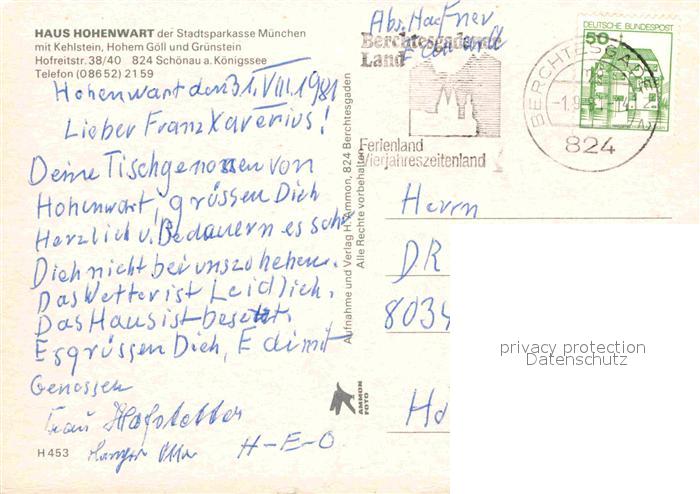 HAUS HOHENWART der Stadtsparkasse München
mit Kehlstein, Hohem Göll und Grünstein
Hofreitstr. 38/40 824 Schönau a. Königssee
Telefon (08652) 2159
Hohenwart den 31. VIII. 1981
Lieber Franz Xaverius!
Deine Tischgenossen von
Hohenwart, grüssen Dich
Herzlich u. Bedauern es sehr
Dich nicht bei uns zu heben.
Das Wetter ist Leidlich.
Das Haus ist besetzt.
Es grüssen Dich, Edi mit
Genossen
Frau Hofstetter
H-E-O
H 453
Aufnahme und Verlag H. Ammon, 824 Berchtesgaden
Alle Rechte vorbehalten
AMMON
FOTO
Abs. Hafner
Berchtesgadener
Land
Ferienland
Vierjahreszeitenland
BERCHTESGADEN
824
DEUTSCHE BUNDESPOST
50
Herrn
DR
8034
privacy protection
Datenschutz